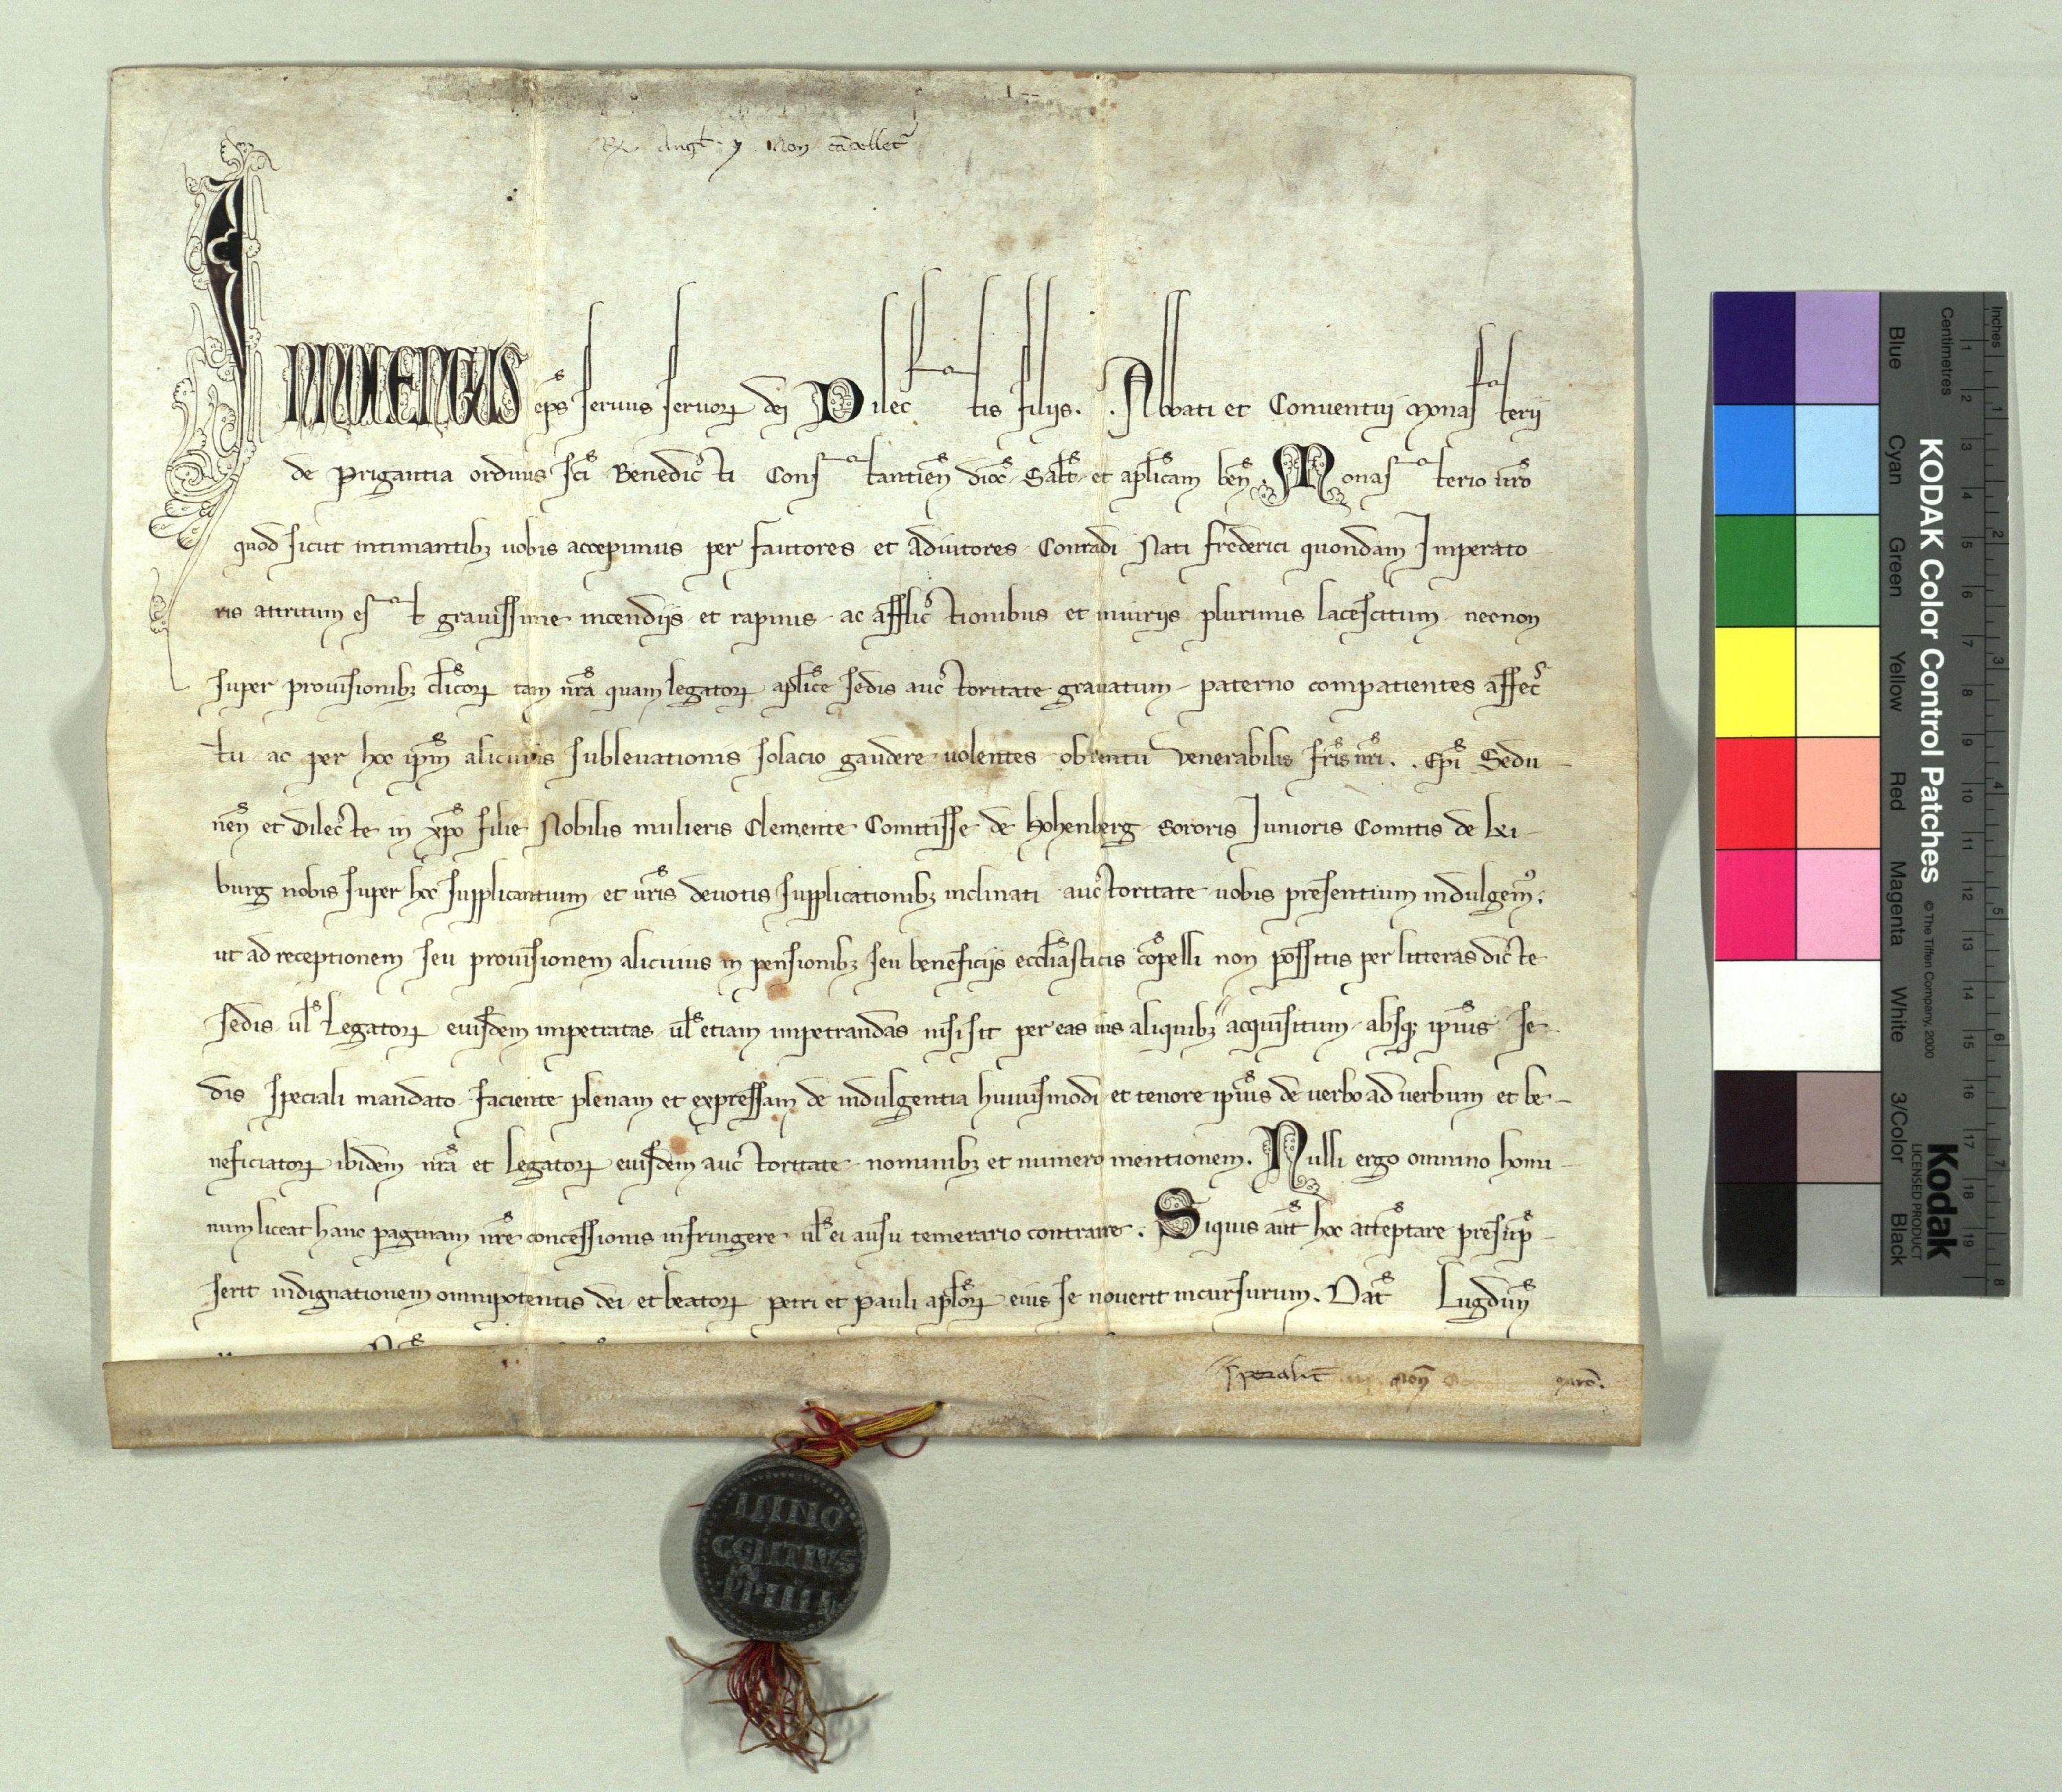 INNOCENTIUS ep̅s seruus seruoꝝ dei Dilectis filiis. . Abbati et Conuentui Monasterii
de Prigantia ordinis sc̅i Benedicti Constantien̅ dioc̅ Salt̅ et ap̅licam ben̅. Monasterio ur̅o
quod sicut intimantibꝫ uobis accepimus per fautores et adiutores Conradi Nati Frederici quondam Imperato
ris attritum est grauissime incendiis et rapinis ac afflictionibus et iniuriis plurimis lacescitum necnon
super prouisionibꝫ cl̅icoꝝ tam nr̅a quam legatoꝝ ap̅lice sedis auctoritate grauatum paterno compatientes affec
tu ac per hoc ip̅m alicuius subleuationis solacio gaudere uolentes obtentu Venerabilis fr̅is nr̅i . . Ep̅i Sedu
nen̅ et dilecte in xp̅o filie Nobilis mulieris Clemente Comitisse de Hohenberg Sororis Iunioris Comitis de Ki
burg nobis super hoc supplicantium et ur̅is deuotis supplicationibꝫ inclinati auctoritate uobis presentium indulgem̅:
ut ad receptionem seu prouisionem alicuius in pensionibꝫ seu beneficiis eccl̅iasticis co̅pelli non possitis per litteras dicte
Sedis ul̅ Legatoꝝ eiusdem impetratas ul̅ etiam impetrandas nisi sit per eas ius aliquibꝫ acquisitum absqꝫ ipi̅us Se
dis speciali mandato faciente plenam et expressam de indulgentia huiusmodi et tenore ipi̅us de uerbo ad uerbum et be
neficiatoꝝ ibidem nr̅a et Legatoꝝ eiusdem auctoritate nominibꝫ et numero mentionem. Nulli ergo omnino homi
num liceat hanc paginam nr̅e concessionis infringere ul̅ ei ausu temerario contraire. Siquis aut̅ hoc atte̅ptare presu̅p
serit indignationem omnipotentis dei et beatoꝝ Petri et Pauli ap̅loꝝ eius se nouerit incursurum. Dat̅ Lugdun̅
INNO
CENTIVS
PP IIII
KODAK Color Control Patches © The Tiffen Company, 2000
Kodak
LICENSED PRODUCT
Inches 1 2 3 4 5 6 7 8
Centimetres 1 2 3 4 5 6 7 8 9 10 11 12 13 14 15 16 17 18 19
Blue Cyan Green Yellow Red Magenta White 3/Color Black